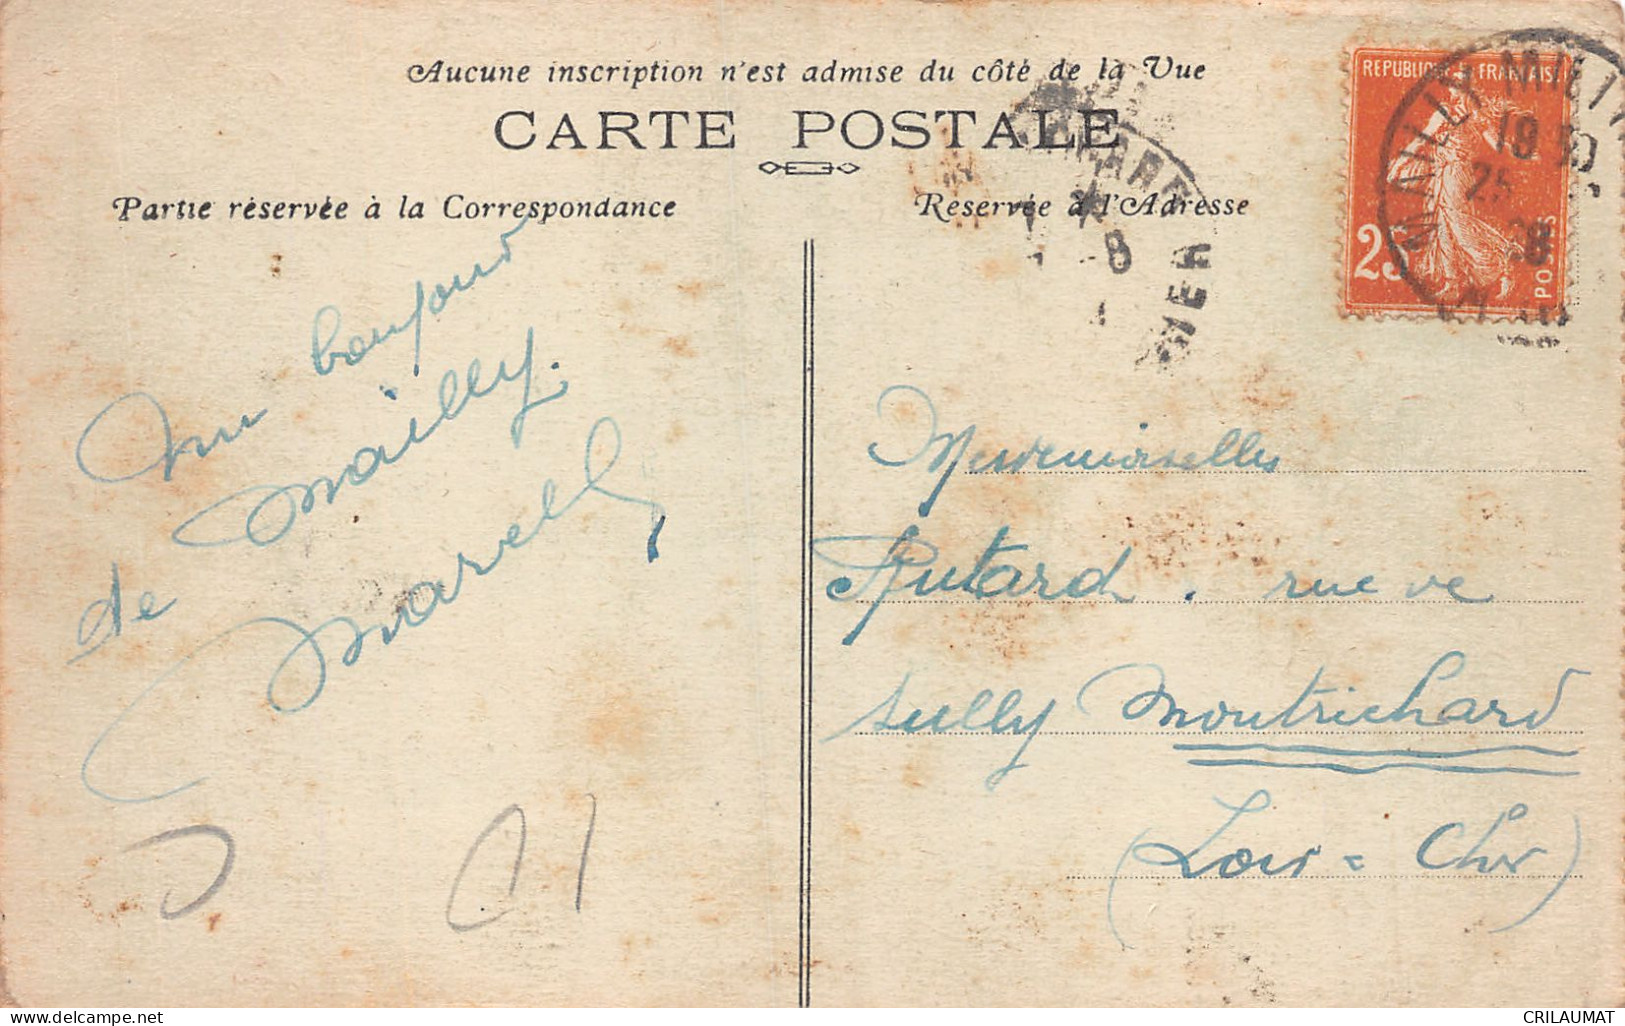 Aucune inscription n'est admise du côté de la Vue
CARTE POSTALE
Partie réservée à la Correspondance
Réservée à l'Adresse
REPUBLIQUE FRANÇAISE
25
POSTES
MAILLY
19
25
8
Un bonjour
de Mailly.
Marcelle
Mesdemoiselles
Autard. rue de
Sully Montrichard
(Loir = Cher)
delcampe.net
CRILAUMAT